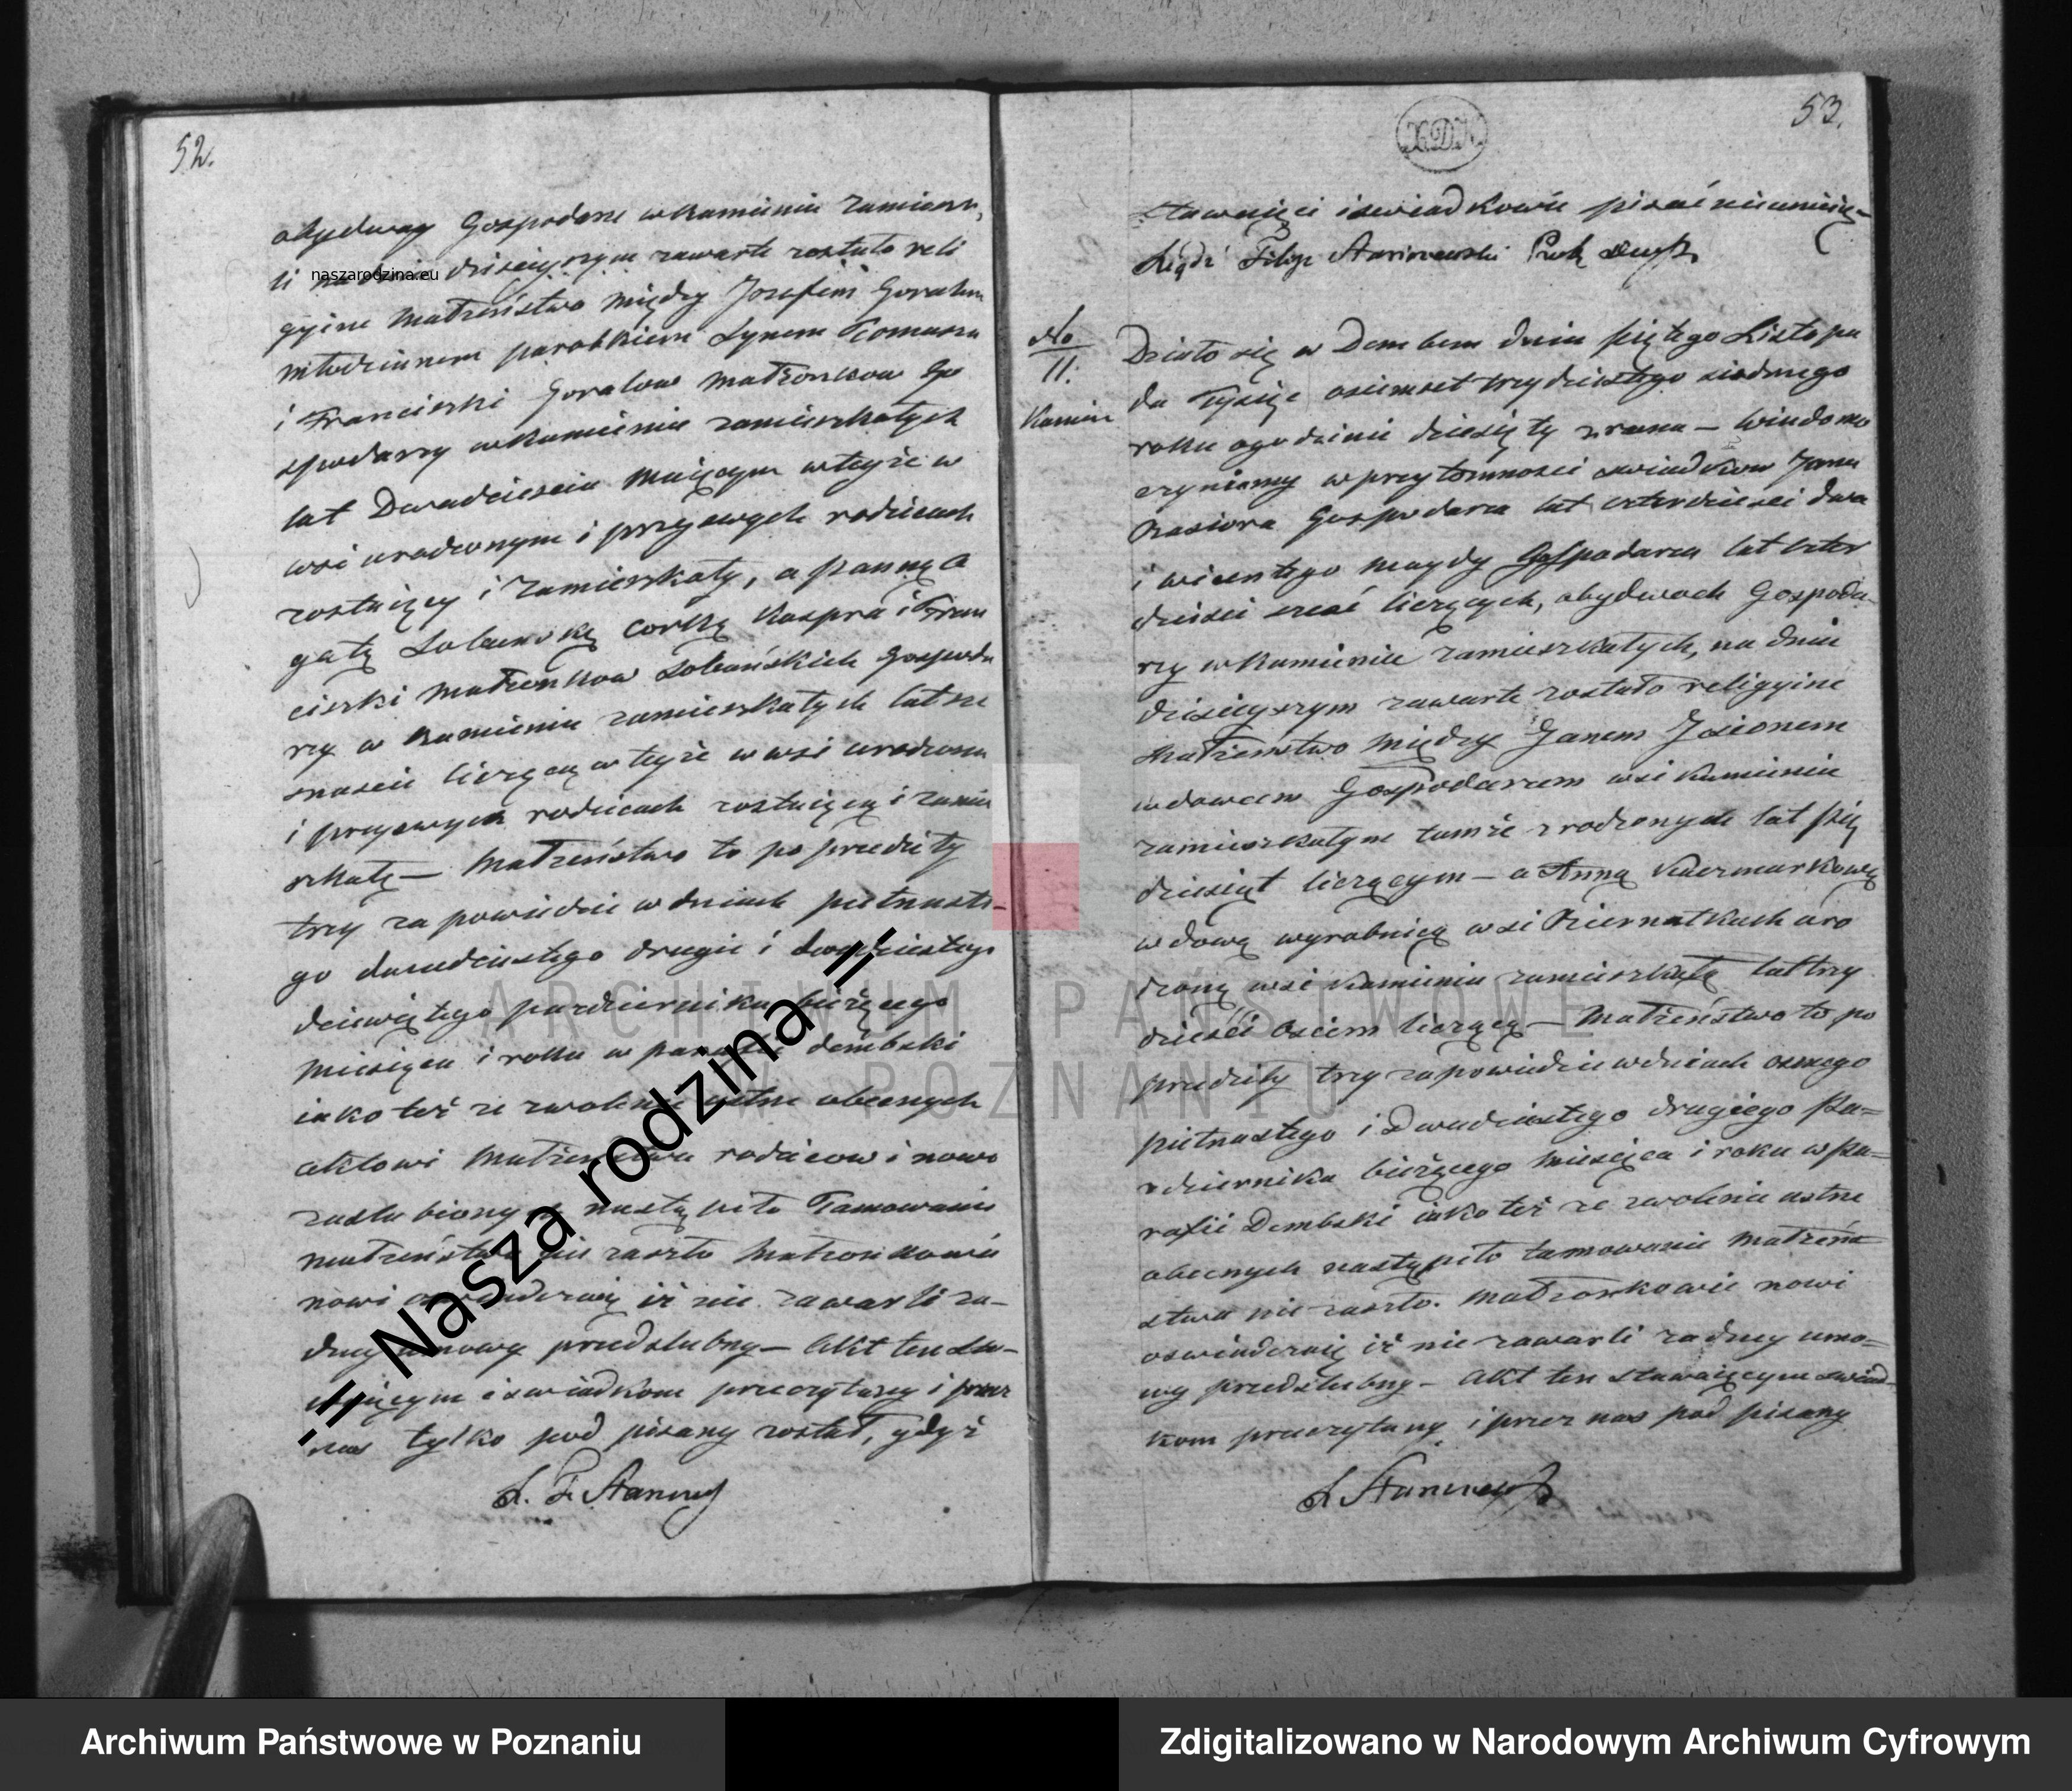 52.
obydwaj Gospodarze w Kamieniu zamiesz,
li na dniu dzisieyszym zawarte zostało reli
gyine Małżeństwo między Jozefem Goralem
młodzianem parobkiem Synem Tomasza
i Franciszki Goralow Małżonkow Go
spodarzy w Kamieniu zamieszkałych
lat Dwadzieścia maiącym w teyże w
wsi urodzonym i przy swych rodzicach
zostaiący i zamieszkały, a panną A
gatą Lobanską corką Kaspra i Fran
ciszki Małżonkow Lobańskich Gospoda
rzy w Kamieniu zamieszkałych lat sze
snaście liczącą w teyże w wsi urodzoną
i przy swych rodzicach zostaiącą i zamie
szkałą — Małżeństwo to poprzedziły
trzy zapowiedzie w dniach pietnaste-
go dwudziestego drugie i dwudziestego
dziewiątego pazdziernika bieżącego
Miesiąca i roku w parafii dembski
iako też ze zwolenie ustne obecnych
aktowi Małżenstwa rodzicow i nowo
zaslubionych nastąpiło Tamowanie
małżeństwa nie zaszło Małzonkowie
nowi oswiadczaią iż nie zawarli ża-
dney umowy przedslubny — Akt ten sta-
waiącym i swiadkom przeczytany i przez
nas tylko pod pisany został, gdyż
X. F. Stanisze
naszarodzina.eu
-= Nasza rodzina =-
53.
stawaiący i swiadkowie pisać nieumieią
Ksiądz Filip Staniszewski Prob Demb
No
11.
Kamień
Działo się w Dembem dnia piątego Listopa
da Tysiąc osiemset trzydziestego siodmego
roku o godzinie dziesięty z rana — Wiadomo
czyniemy w przytomnosci swiadkow Jana
Gospodarza lat czterdzieści dwa
i wicentego Magdy Gospodarza lat czter
dziesci szesć liczących, obydwoch Gospoda-
rzy w Kamieniu zamieszkałych, na dniu
dzisieyszym zawarte zostało religyine
Małżeństwo między Janem Jesionem
wdowcem Gospodarzem wsi Kamieniu
zamieszkałym tamże zrodzonym lat pię
dziesiąt liczącym — a Anną Kaczmarkową
wdową wyrobnicą wsi Biernatkach uro
dzoną wsi Kamieniu zamieszkałą lat trzy
dzieści osiem liczącą — Małżeństwo to po
przedziły trzy zapowiedzie w dniach osmego
pietnastego i Dwudziestego drugiego Pa=
zdziernika bieżącego Miesiąca i roku w Pa=
rafii Dembski iako też ze zwolenie ustne
obecnych nastąpiło tamowanie Małżeń=
stwa nie zaszło. Małżonkowie nowi
oswiadczaią iż nie zawarli żadney umo=
wy przedslubny — Akt ten stawaiącym swiad-
kom przeczytany i przez nas pod pisany
X Staniszewsk
ARCHIWUM PAŃSTWOWE
W POZNANIU
Archiwum Państwowe w Poznaniu
Zdigitalizowano w Narodowym Archiwum Cyfrowym